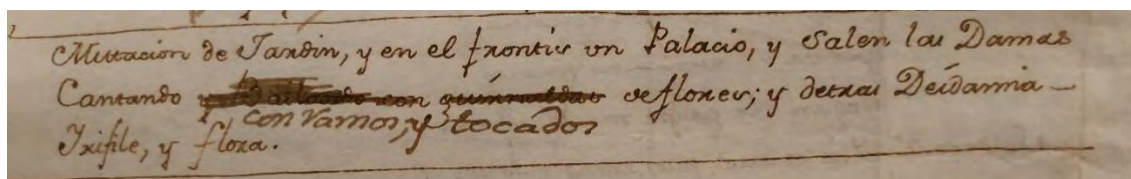 Mutacion de Jardin, y en el frontis vn Palacio, y Salen las Damas
Cantando y Bailando con guirnaldas de flores; y detras Deidamia —
con ramos, y tocados
Irifile, y flora.